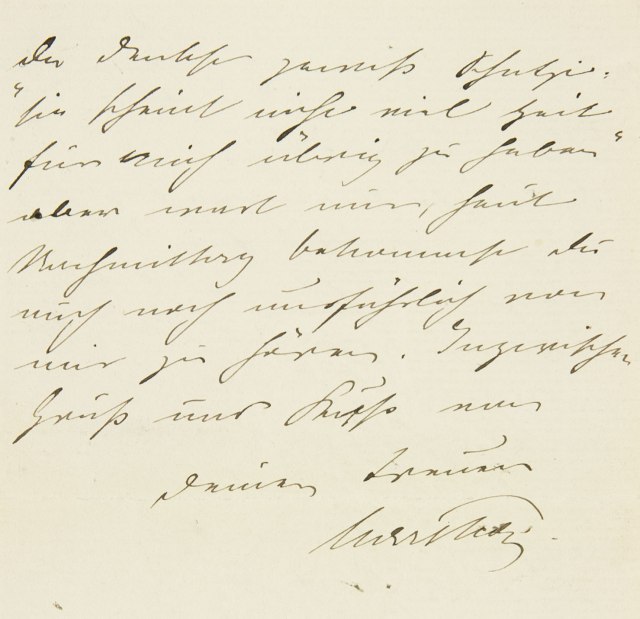 Du denkst gewiß Schatzi:
"sie scheint nicht viel Zeit
für mich übrig zu haben"
aber wart nur, heut
Nachmittag bekommst du
noch ausführlich von
mir zu hören. Inzwischen
Gruß und Kuß von
deiner treuen